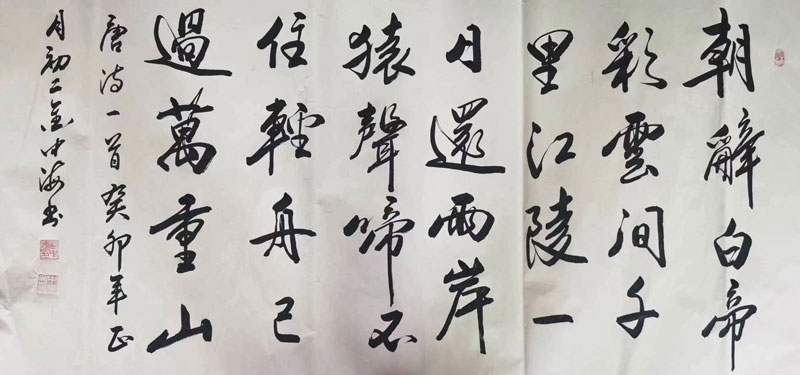 朝辭白帝
彩雲间千
里江陵一
日還兩岸
猿聲啼不
住輕舟已
過萬重山
唐诗一首癸卯年正
月初二金中海书